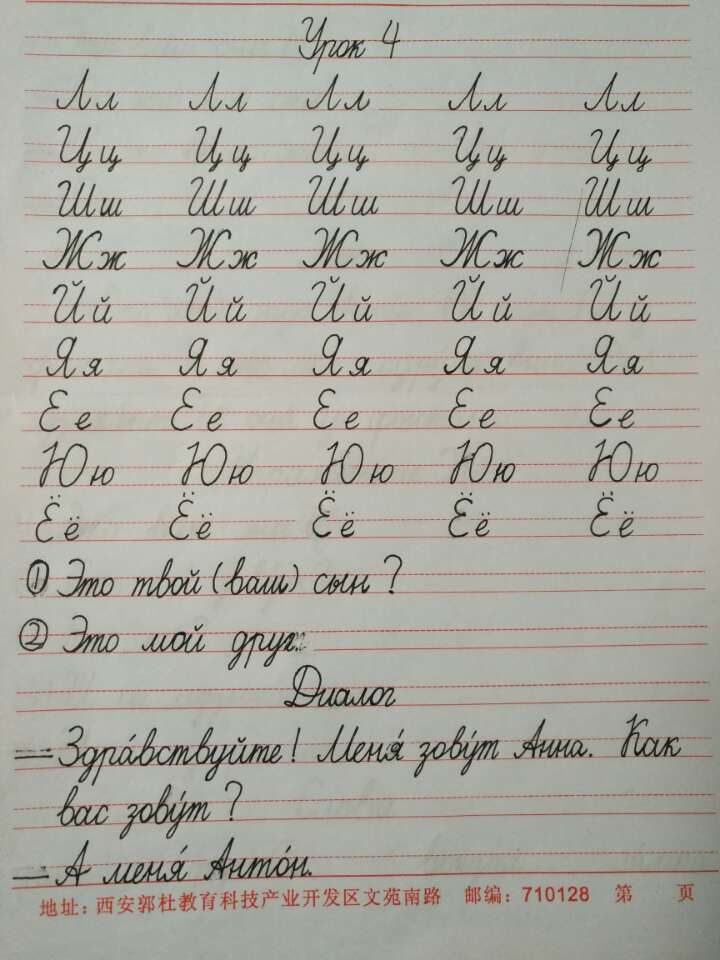 Урок 4
Лл Лл Лл Лл Лл
Цц Цц Цц Цц Цц
Шш Шш Шш Шш Шш
Жж Жж Жж Жж Жж
Йй Йй Йй Йй Йй
Яя Яя Яя Яя Яя
Ее Ее Ее Ее Ее
Юю Юю Юю Юю Юю
Ёё Ёё Ёё Ёё Ёё
① Это твой (ваш) сын?
② Это мой друг.
Диалог
— Здра́вствуйте! Меня́ зову́т Анна. Как
вас зову́т?
— А меня́ Анто́н.
地址:西安郭杜教育科技产业开发区文苑南路 邮编:710128 第 页